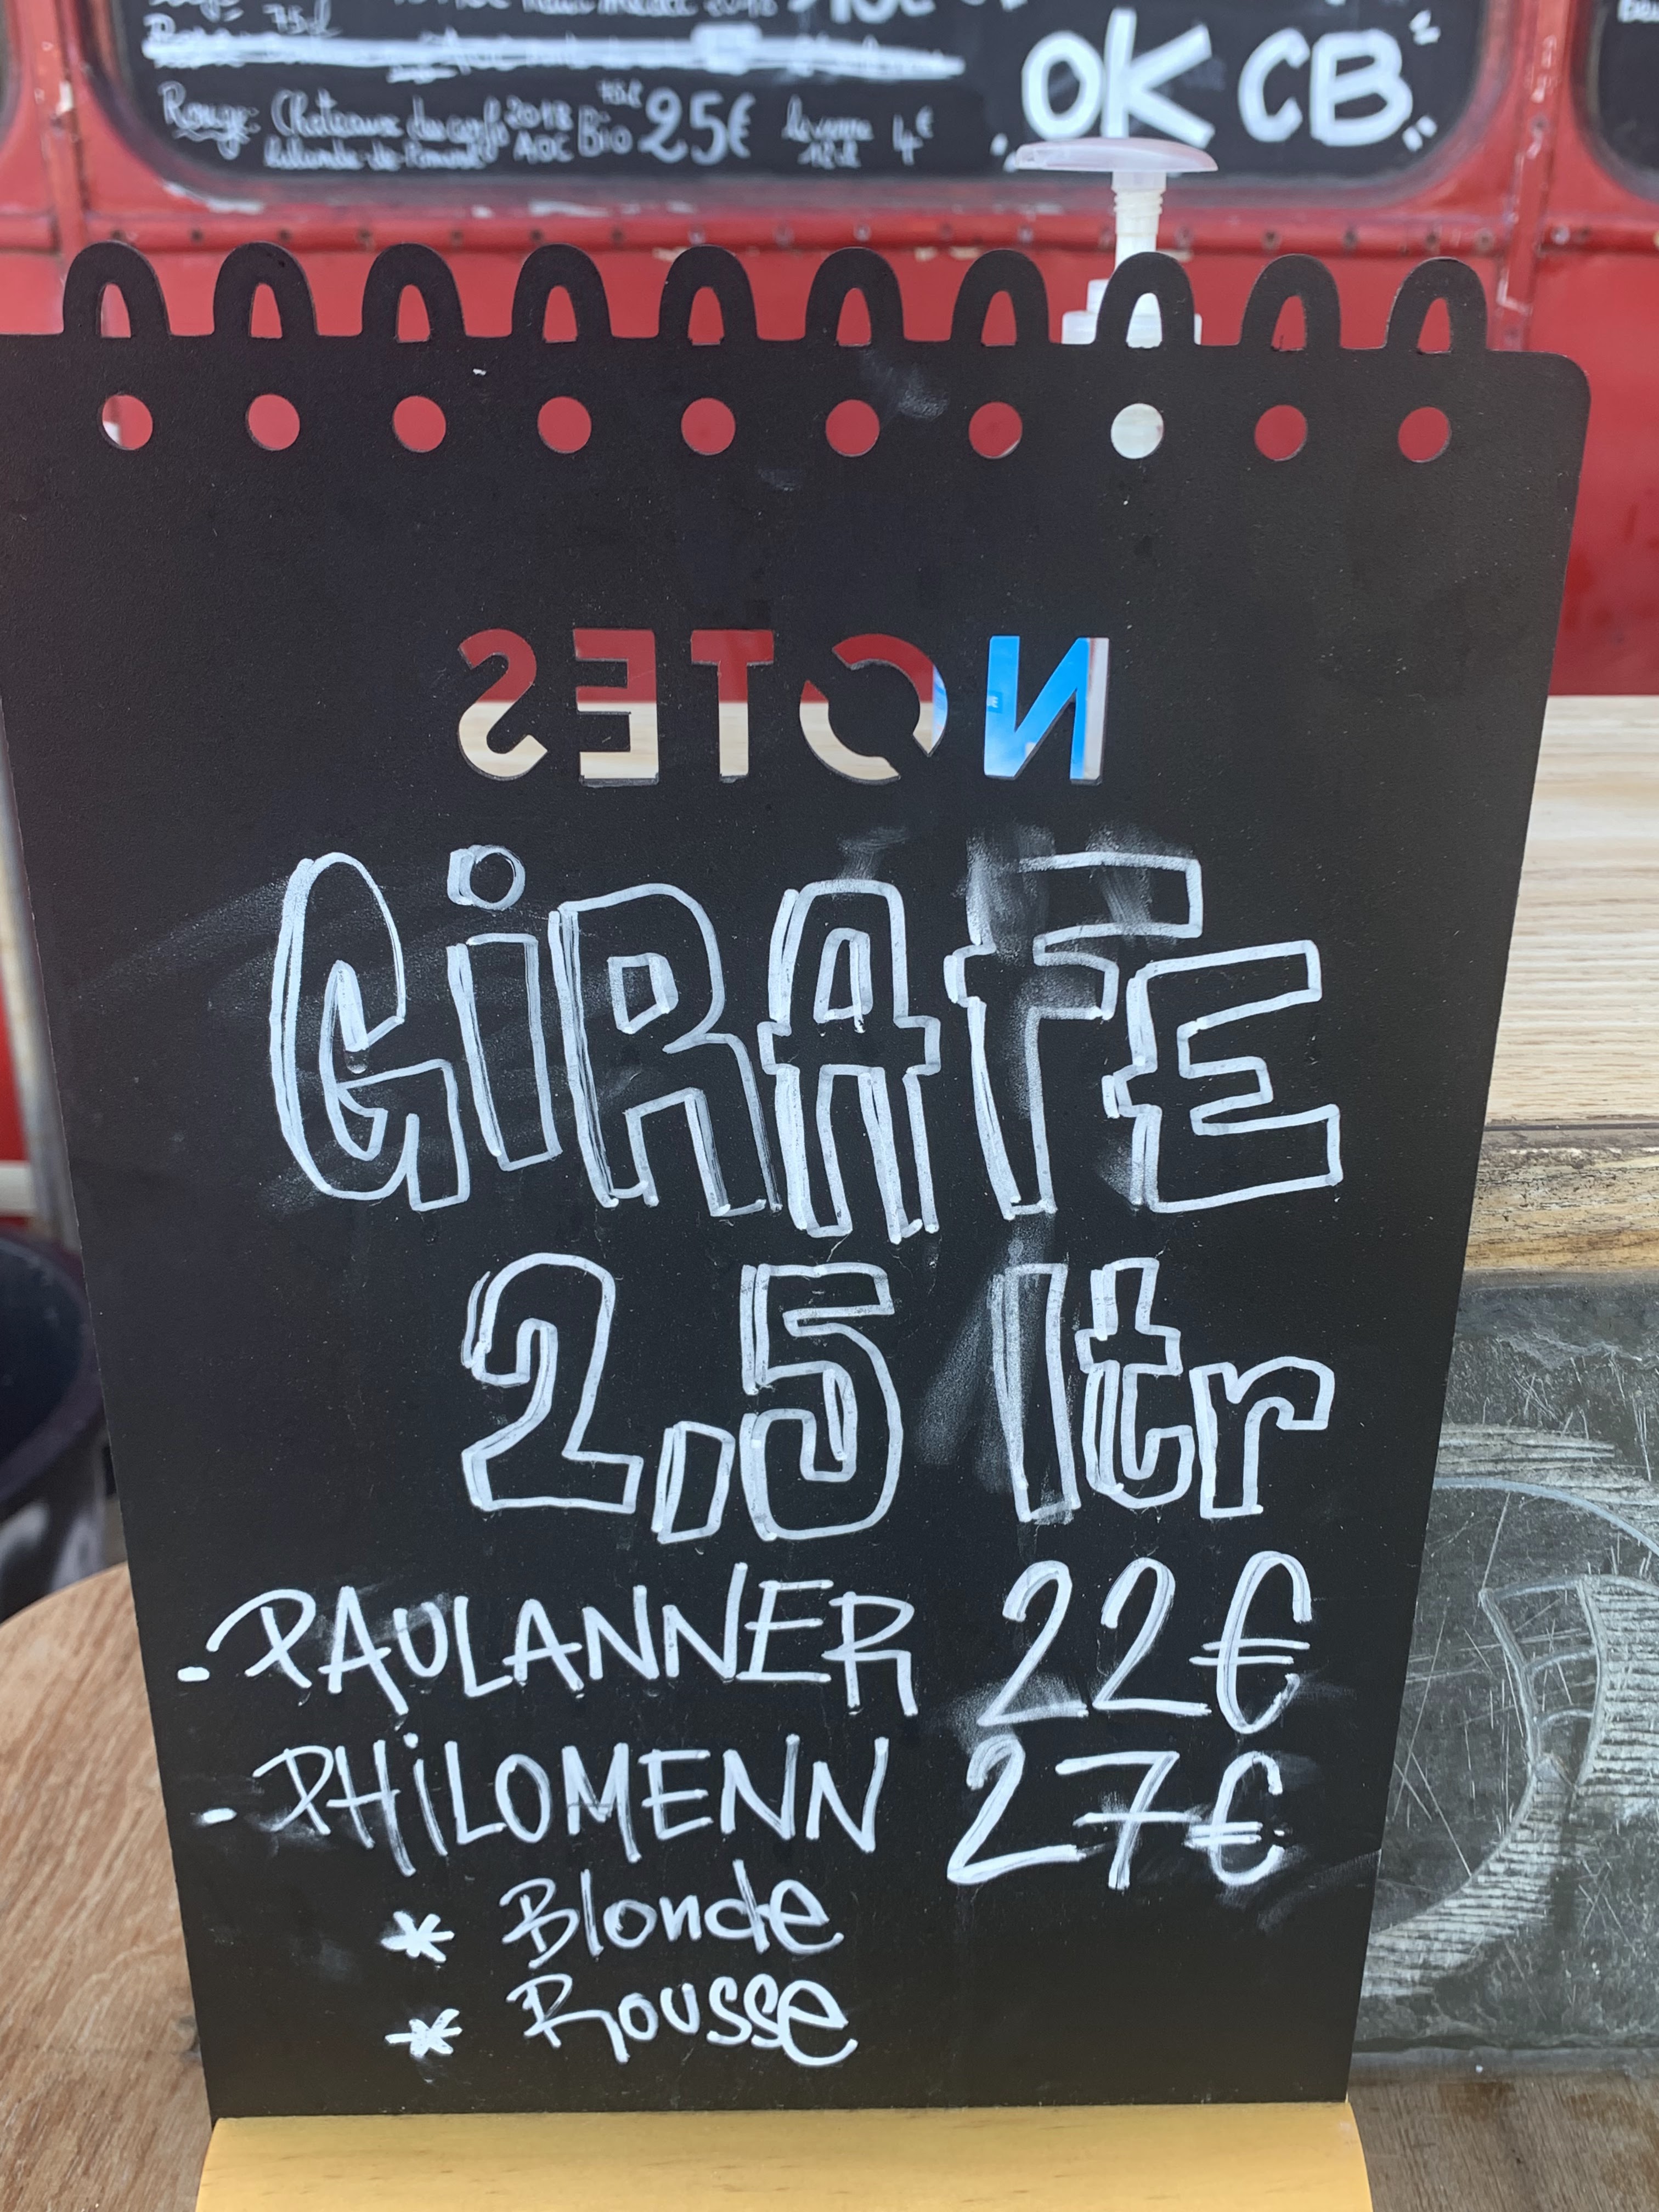 75cl
OK CB
Rouge: 2018 75cl 25€ le verre 4€
AOC Bio 12cl
NOTES
GiRAFE
2,5 ltr
- PAULANNER 22€
- PHiLOMENN 27€
* Blonde
* Rousse